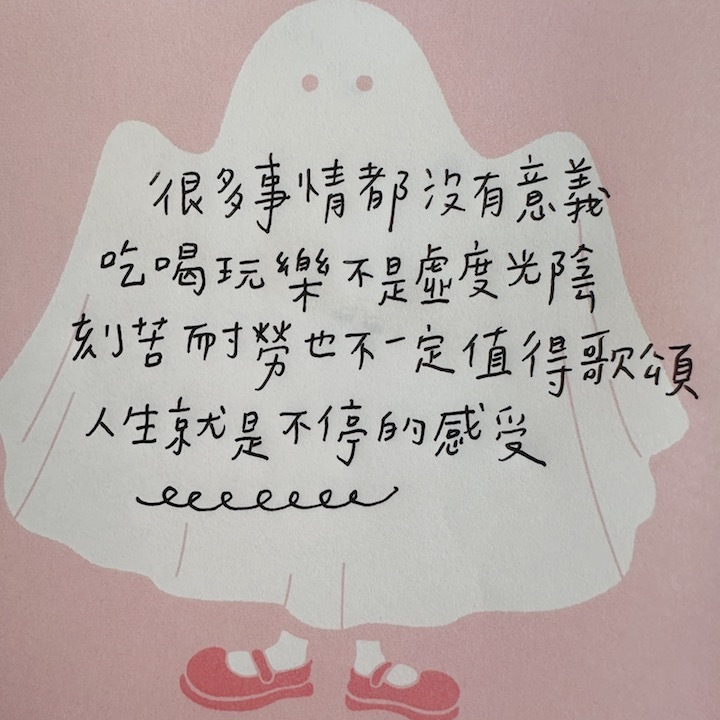 很多事情都沒有意義
吃喝玩樂不是虛度光陰
刻苦耐勞也不一定值得歌頌
人生就是不停的感受